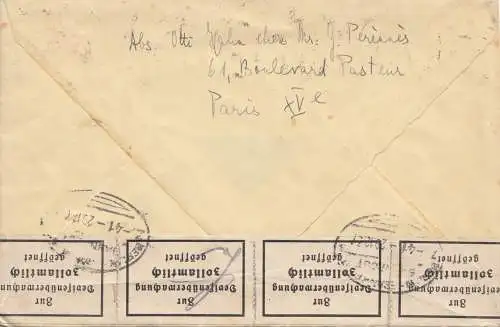 Abs. Otti Hahn chez Mr. J. Périnès
61, Boulevard Pasteur
Paris XVe
Zur
Devisenüberwachung
zollamtlich
geöffnet
Zur
Devisenüberwachung
zollamtlich
geöffnet
Zur
Devisenüberwachung
zollamtlich
geöffnet
Zur
Devisenüberwachung
zollamtlich
geöffnet